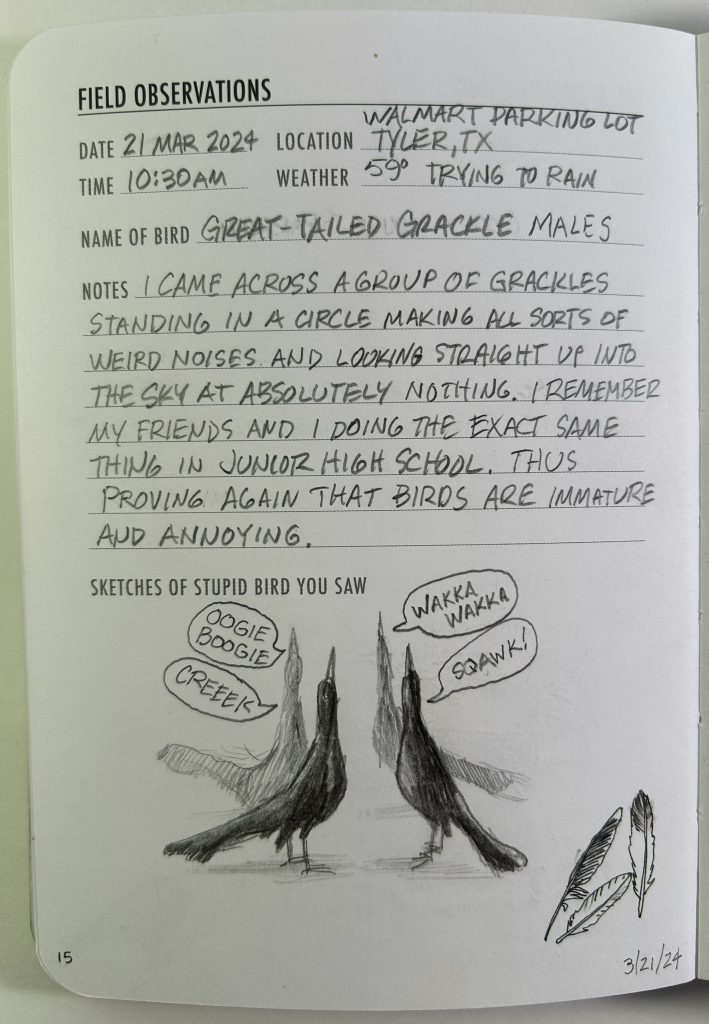 FIELD OBSERVATIONS
DATE 21 MAR 2024 LOCATION WALMART PARKING LOT
TYLER, TX
TIME 10:30AM WEATHER 59° TRYING TO RAIN
NAME OF BIRD GREAT-TAILED GRACKLE MALES
NOTES I CAME ACROSS A GROUP OF GRACKLES
STANDING IN A CIRCLE MAKING ALL SORTS OF
WEIRD NOISES AND LOOKING STRAIGHT UP INTO
THE SKY AT ABSOLUTELY NOTHING. I REMEMBER
MY FRIENDS AND I DOING THE EXACT SAME
THING IN JUNIOR HIGH SCHOOL. THUS
PROVING AGAIN THAT BIRDS ARE IMMATURE
AND ANNOYING.
SKETCHES OF STUPID BIRD YOU SAW
OOGIE
BOOGIE
CREEEK
WAKKA
WAKKA
SQAWK!
15
3/21/24